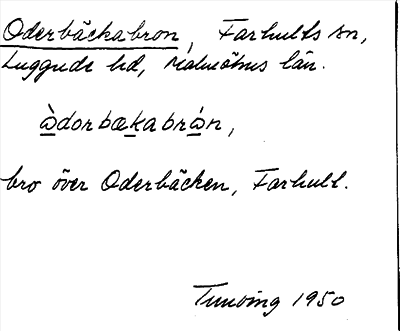 Oderbäckabron, Farhults sn,
Luggude hd, Malmöhus län.
ὰdorbækabrάn,
bro över Oderbäcken, Farhult.
Tunving 1950